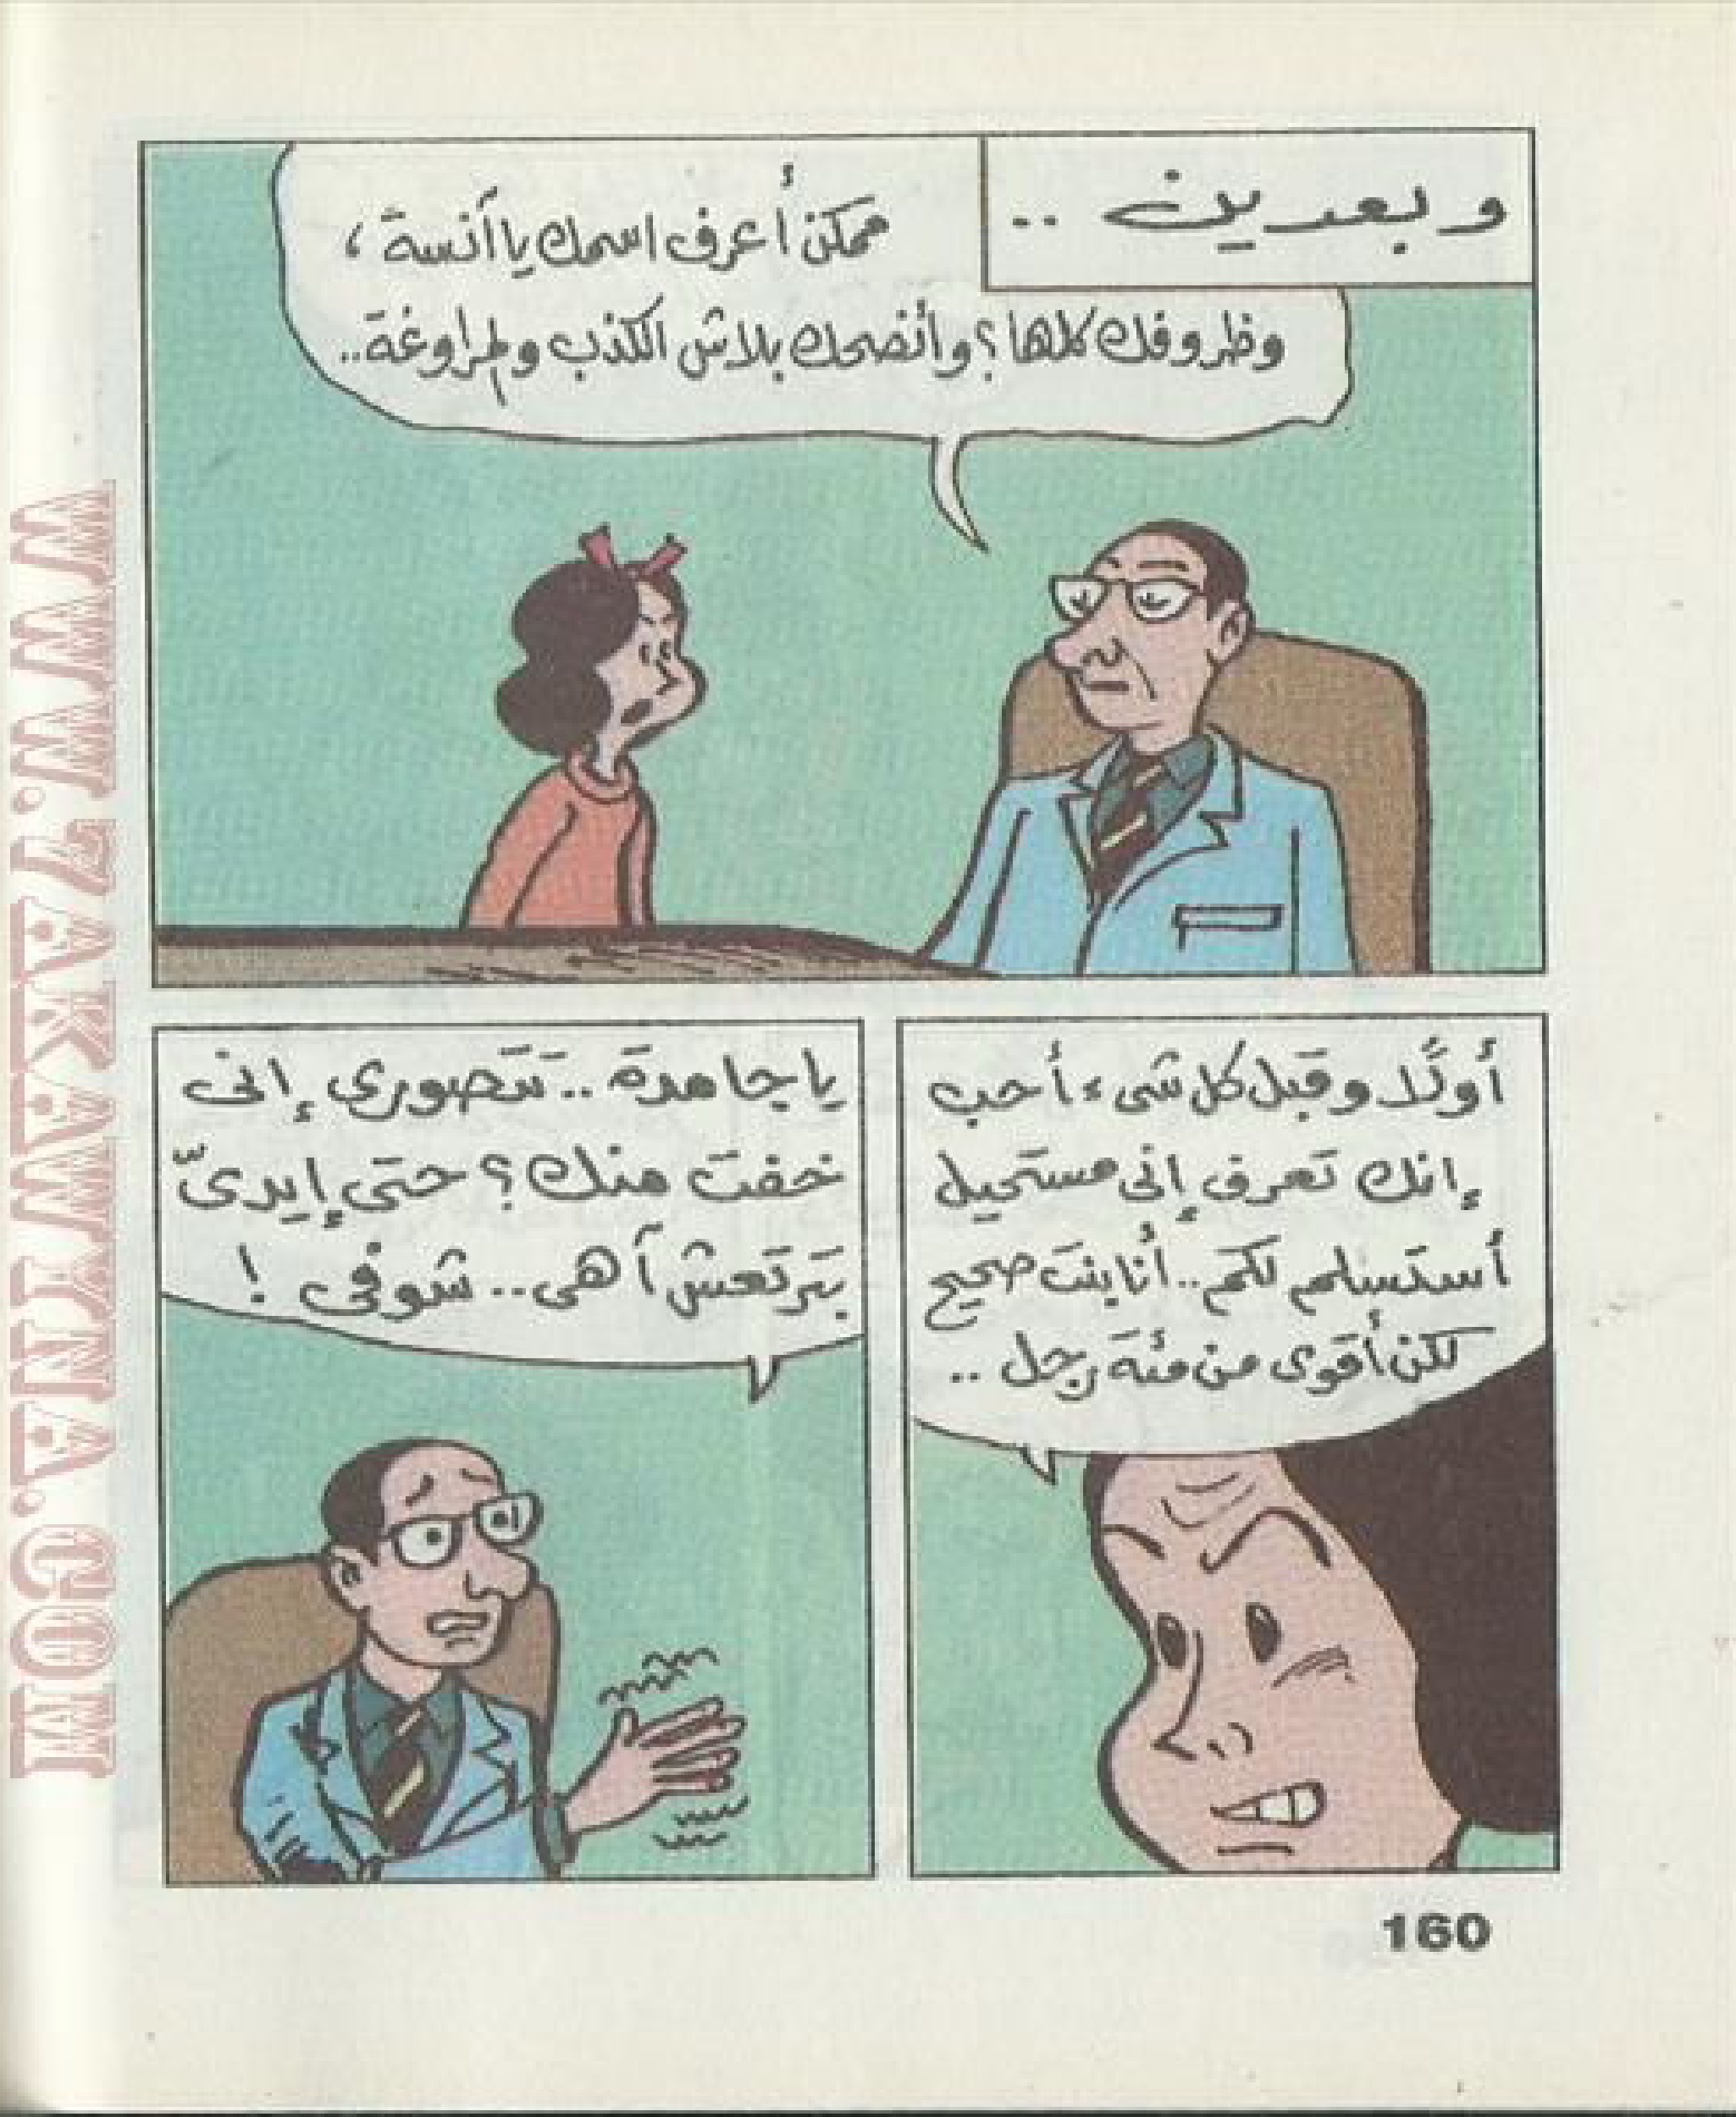 وبعدين ..
ممكن أُعرف اسمك يا آنسة ،
وظروفك كلها؟ وأنصحك بلاش الكذب والمراوغة..
أولًا وقبل كل شىء أحب
إنك تعرف إنى مستحيل
أستسلم لكم.. أنا بنت صحيح
لكن أقوى من مئة رجل ..
يا جامدة .. تتصورى إنى
خفت منك؟ حتى إيدىّ
بترتعش آهى.. شوفى !
160
WWW.7AKAWINA.COM